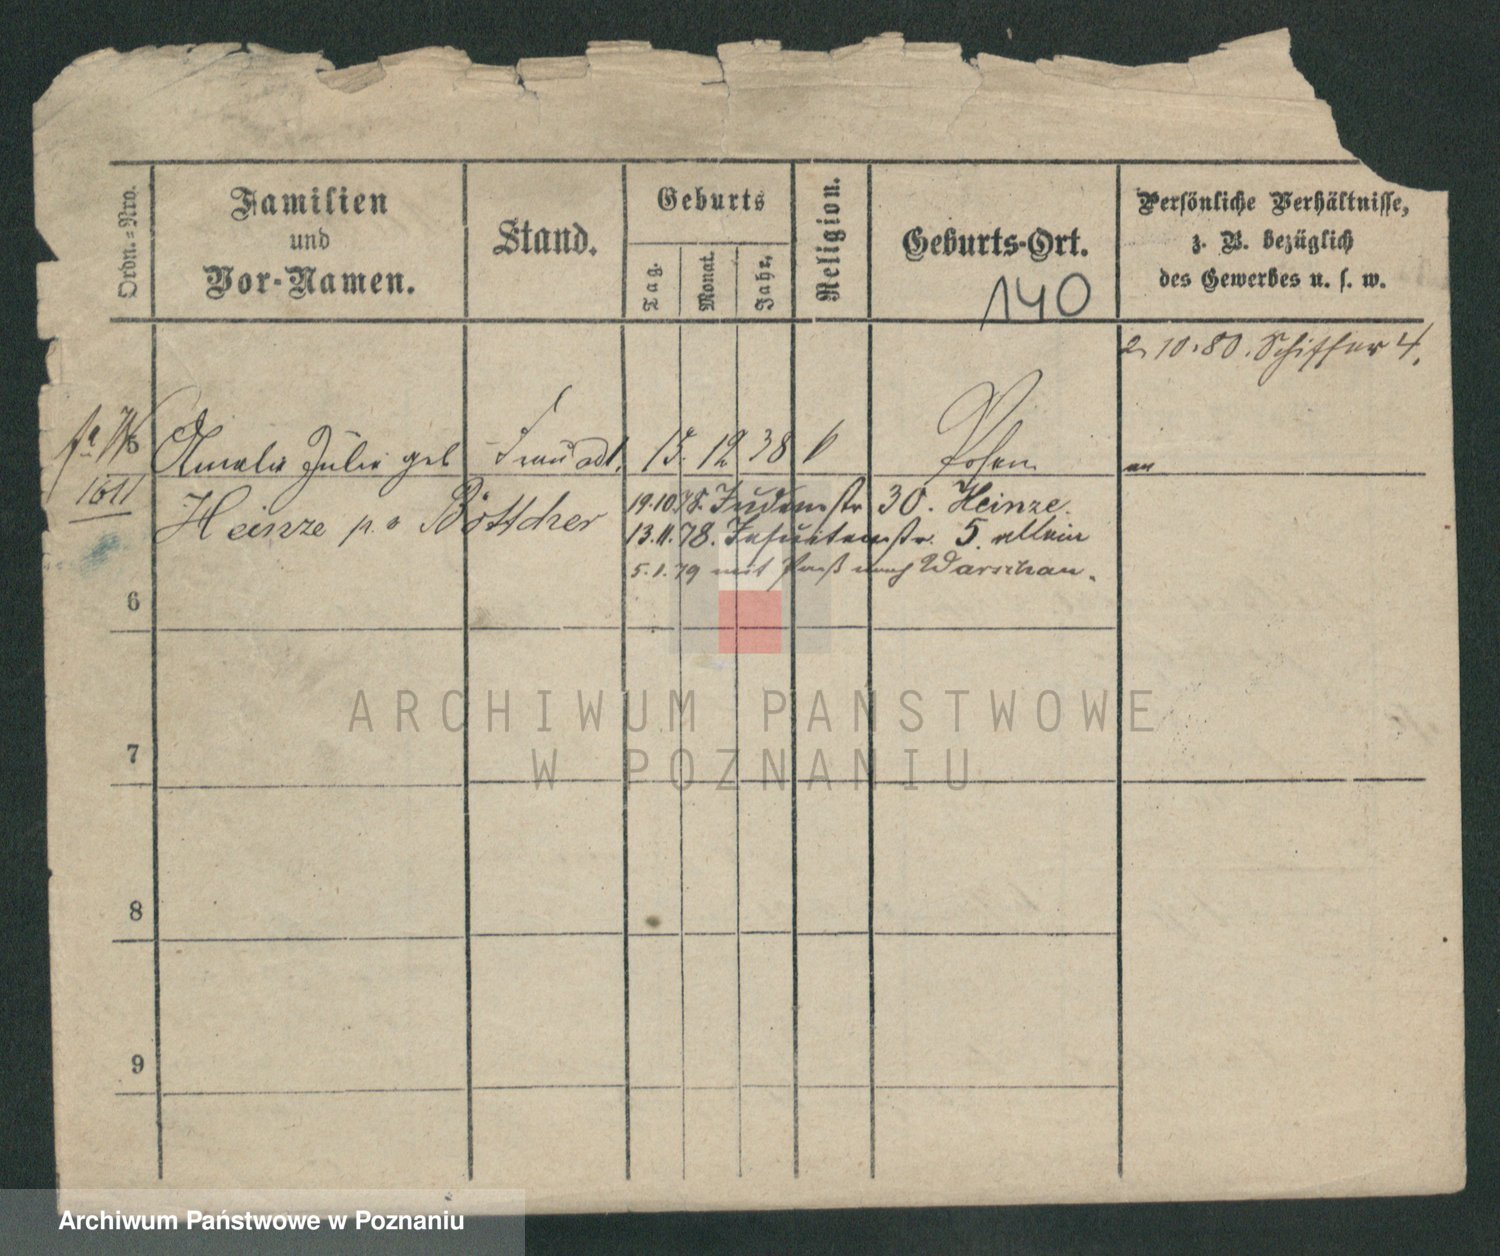 Ordn.=Nro.
Familien
und
Vor-Namen.
Stand.
Geburts
Tag.
Monat.
Jahr.
Religion.
Geburts-Ort.
140
Persönliche Verhältnisse,
z. B. bezüglich
des Gewerbes u. s. w.
2. 10. 80. Schiffer 4.
5 Amalie Julie geb Frau 13. 12 38 Posen
1611
Heinze Böttcher
19.10.78. Judenstr 30. Heinze.
13.11.78. Jesuitenstr. 5. allein
5.1.79 mit Paß nach Warschau.
6
7
8
9
ARCHIWUM PAŃSTWOWE
W POZNANIU
Archiwum Państwowe w Poznaniu